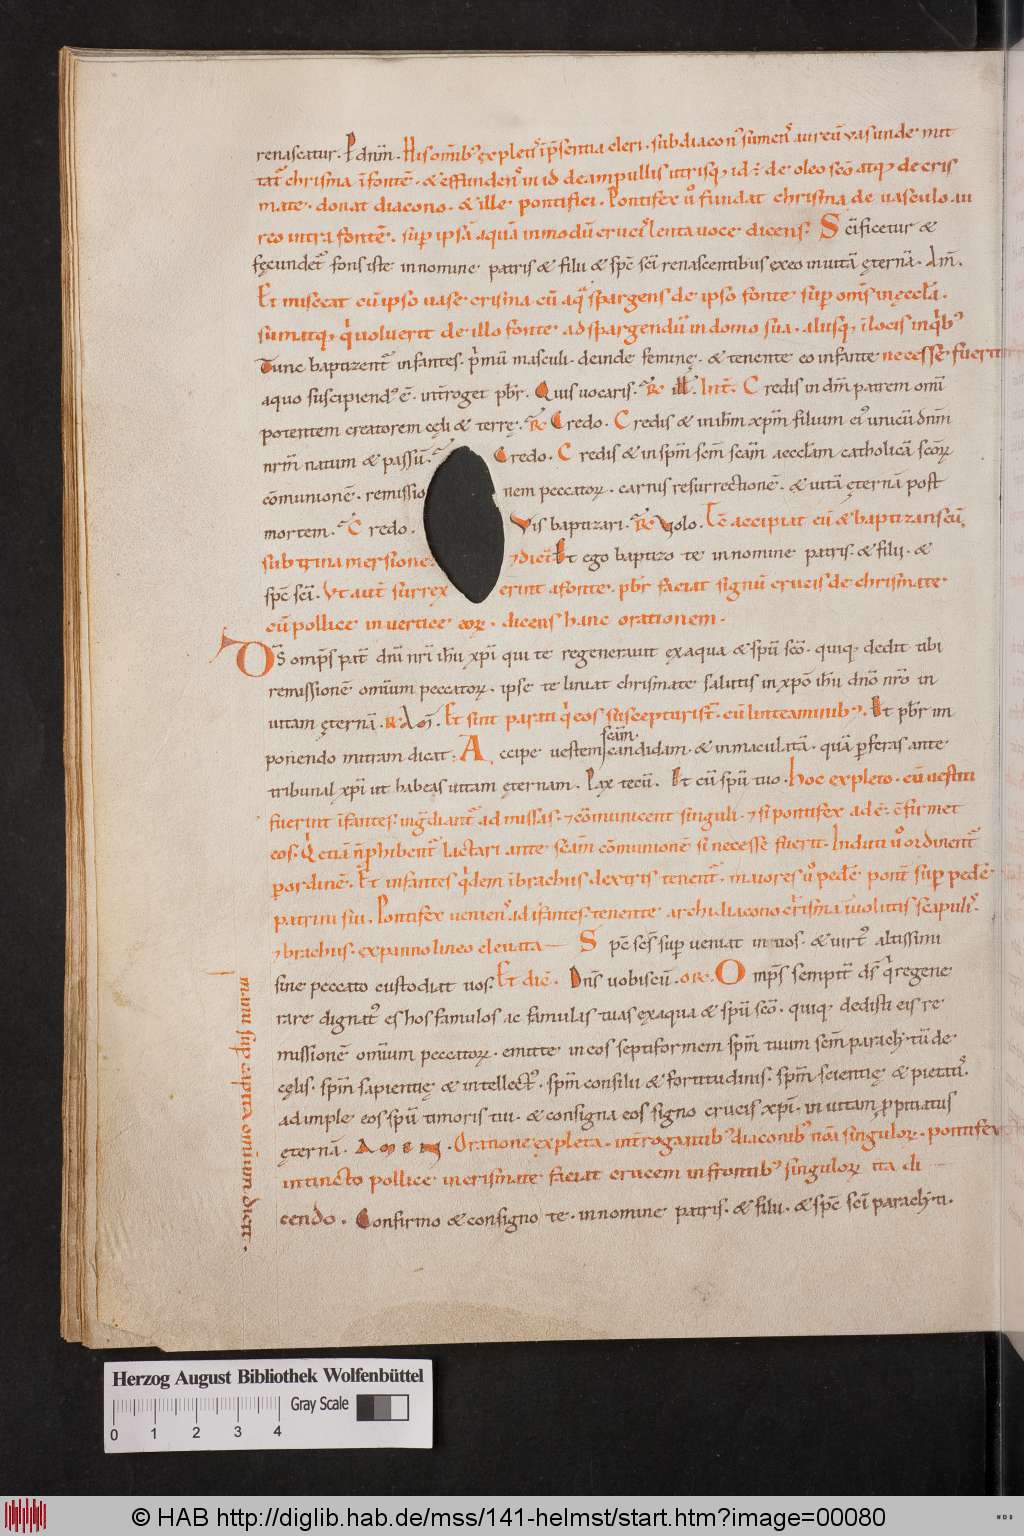 renascatur. P dnm̄. His omīb; expletis ī p̄sentia cleri. subdiacon' sumens aureū vas unde mit
tat chrisma ī fontē. & effundens in id de ampullis utrisq; id ē de oleo scō atq; de cris
mate. donat diacono. & ille pontifici. Pontifex u° fundat chrisma de uasculo au
reo intra fontē. sup ipsā aquā in modū crucis lenta uoce dicens. Scīficetur &
fęcundet' fons iste in nomine patris & filii & spc̄ scī renascentibus ex eo in uitā ęternā. Am̄.
Et misceat cū ipso uase crisma cū aq̄ spargens de ipso fonte sup om̄s in ęccłā.
sumatq; qi uoluerit de illo fonte ad spargendū in domo sua. aliisq; ī locis in qib;
Tunc baptizent' infantes. p̄mū masculi. deinde feminę. & tenente eo infante necesse fuerit
a quo suscipiend' ē. int̄roget pbr̄. Quis uocaris. R̄ ill̄. Int̄. Credis in dm̄ patrem omī
potentem creatorem cęli & terrę. R̄ Credo. Credis & in ihm̄ xpm̄ filium ei' unicū dnm̄
nrm̄ natum & passū. R̄ Credo. Credis & in spm̄ scm̄ scam̄ aeccłam catholicā scōꝝ
cōmunionē. remissionem peccatoꝝ. carnis resurrectionē. & uitā ęternā post
mortem. R̄ Credo. Vis baptizari. R̄ Volo. Tc̄ accipiat eū & baptizans eū
sub trina mersione. & dicēs Et ego baptizo te in nomine patris. & filii. &
spc̄ scī. Vt aut̄ surrexerint a fonte. pbr̄ faciat signū crucis de chrismate
cū pollice in uertice eoꝝ. dicens hanc orationem.
Ds̄ omps̄ pat̄ dnī nrī ihū xpī qui te regenerauit ex aqua & spū scō. quiq; dedit tibi
remissionē omium peccatoꝝ. ipse te liniat chrismate salutis in xpō ihū dnō nrō in
uitam ęternā. R̄ Am̄. Et sint parati qi eos suscepturi st̄. cū linteaminib;. Et pbr̄ im
ponendo mitram dicat. Accipe uestem scām candidam. & inmaculatā. quā pferas ante
tribunal xpī ut habeas uitam ęternam. Pax tecū. Et cū spū tuo. Hoc expleto. cū uestiti
fuerint ī fantes. ingrediant' ad missas. & cōmunicent singuli. & si pontifex ad ē. cōfirmet
eos. Qi etiā n̄ phibent' lactari ante scam̄ cōmunionē si necesse fuerit. Induti u° ordinent'
p ordinē. Et infantes qidem ī brachiis dextris tenent'. maiores u° pedē pon̄t sup pedē
patrini sui. Pontifex ueniens ad ī fantes. tenente archidiacono crisma īuolutis scapulis
& brachiis. ex panno lineo eleuata — Spc̄ scs̄ superueniat in uos. & uirt' altissimi
sine peccato custodiat uos. Et dic̄. Dns̄ uobiscū. or̄. Omps̄ sempit̄ ds̄ qi regene
rare dignat' es hos famulos ac famulas tuas ex aqua & spū scō. quiq; dedisti eis re
missionē omium peccatoꝝ. emitte in eos septiformem spm̄ tuum scm̄ paracłitū de
cęlis. spm̄ sapientię & intellect'. spm̄ consilii & fortitudinis. spm̄ scientię & pietatis.
adimple eos spū timoris tui. & consigna eos signo crucis xpī. in uitam ppitiatus
ęternā. AMEN. Oratione expleta. int̄rogantib; diaconib; noīa singuloꝝ. pontifex
intincto pollice in crismate faciat crucem in frontib; singuloꝝ ita di
cendo. Confirmo & consigno te. in nomine patris. & filii. & spc̄ scī paracłiti.
manu sup capita omnium dicit.
Herzog August Bibliothek Wolfenbüttel
0 1 2 3 4 Gray Scale
© HAB http://diglib.hab.de/mss/141-helmst/start.htm?image=00080